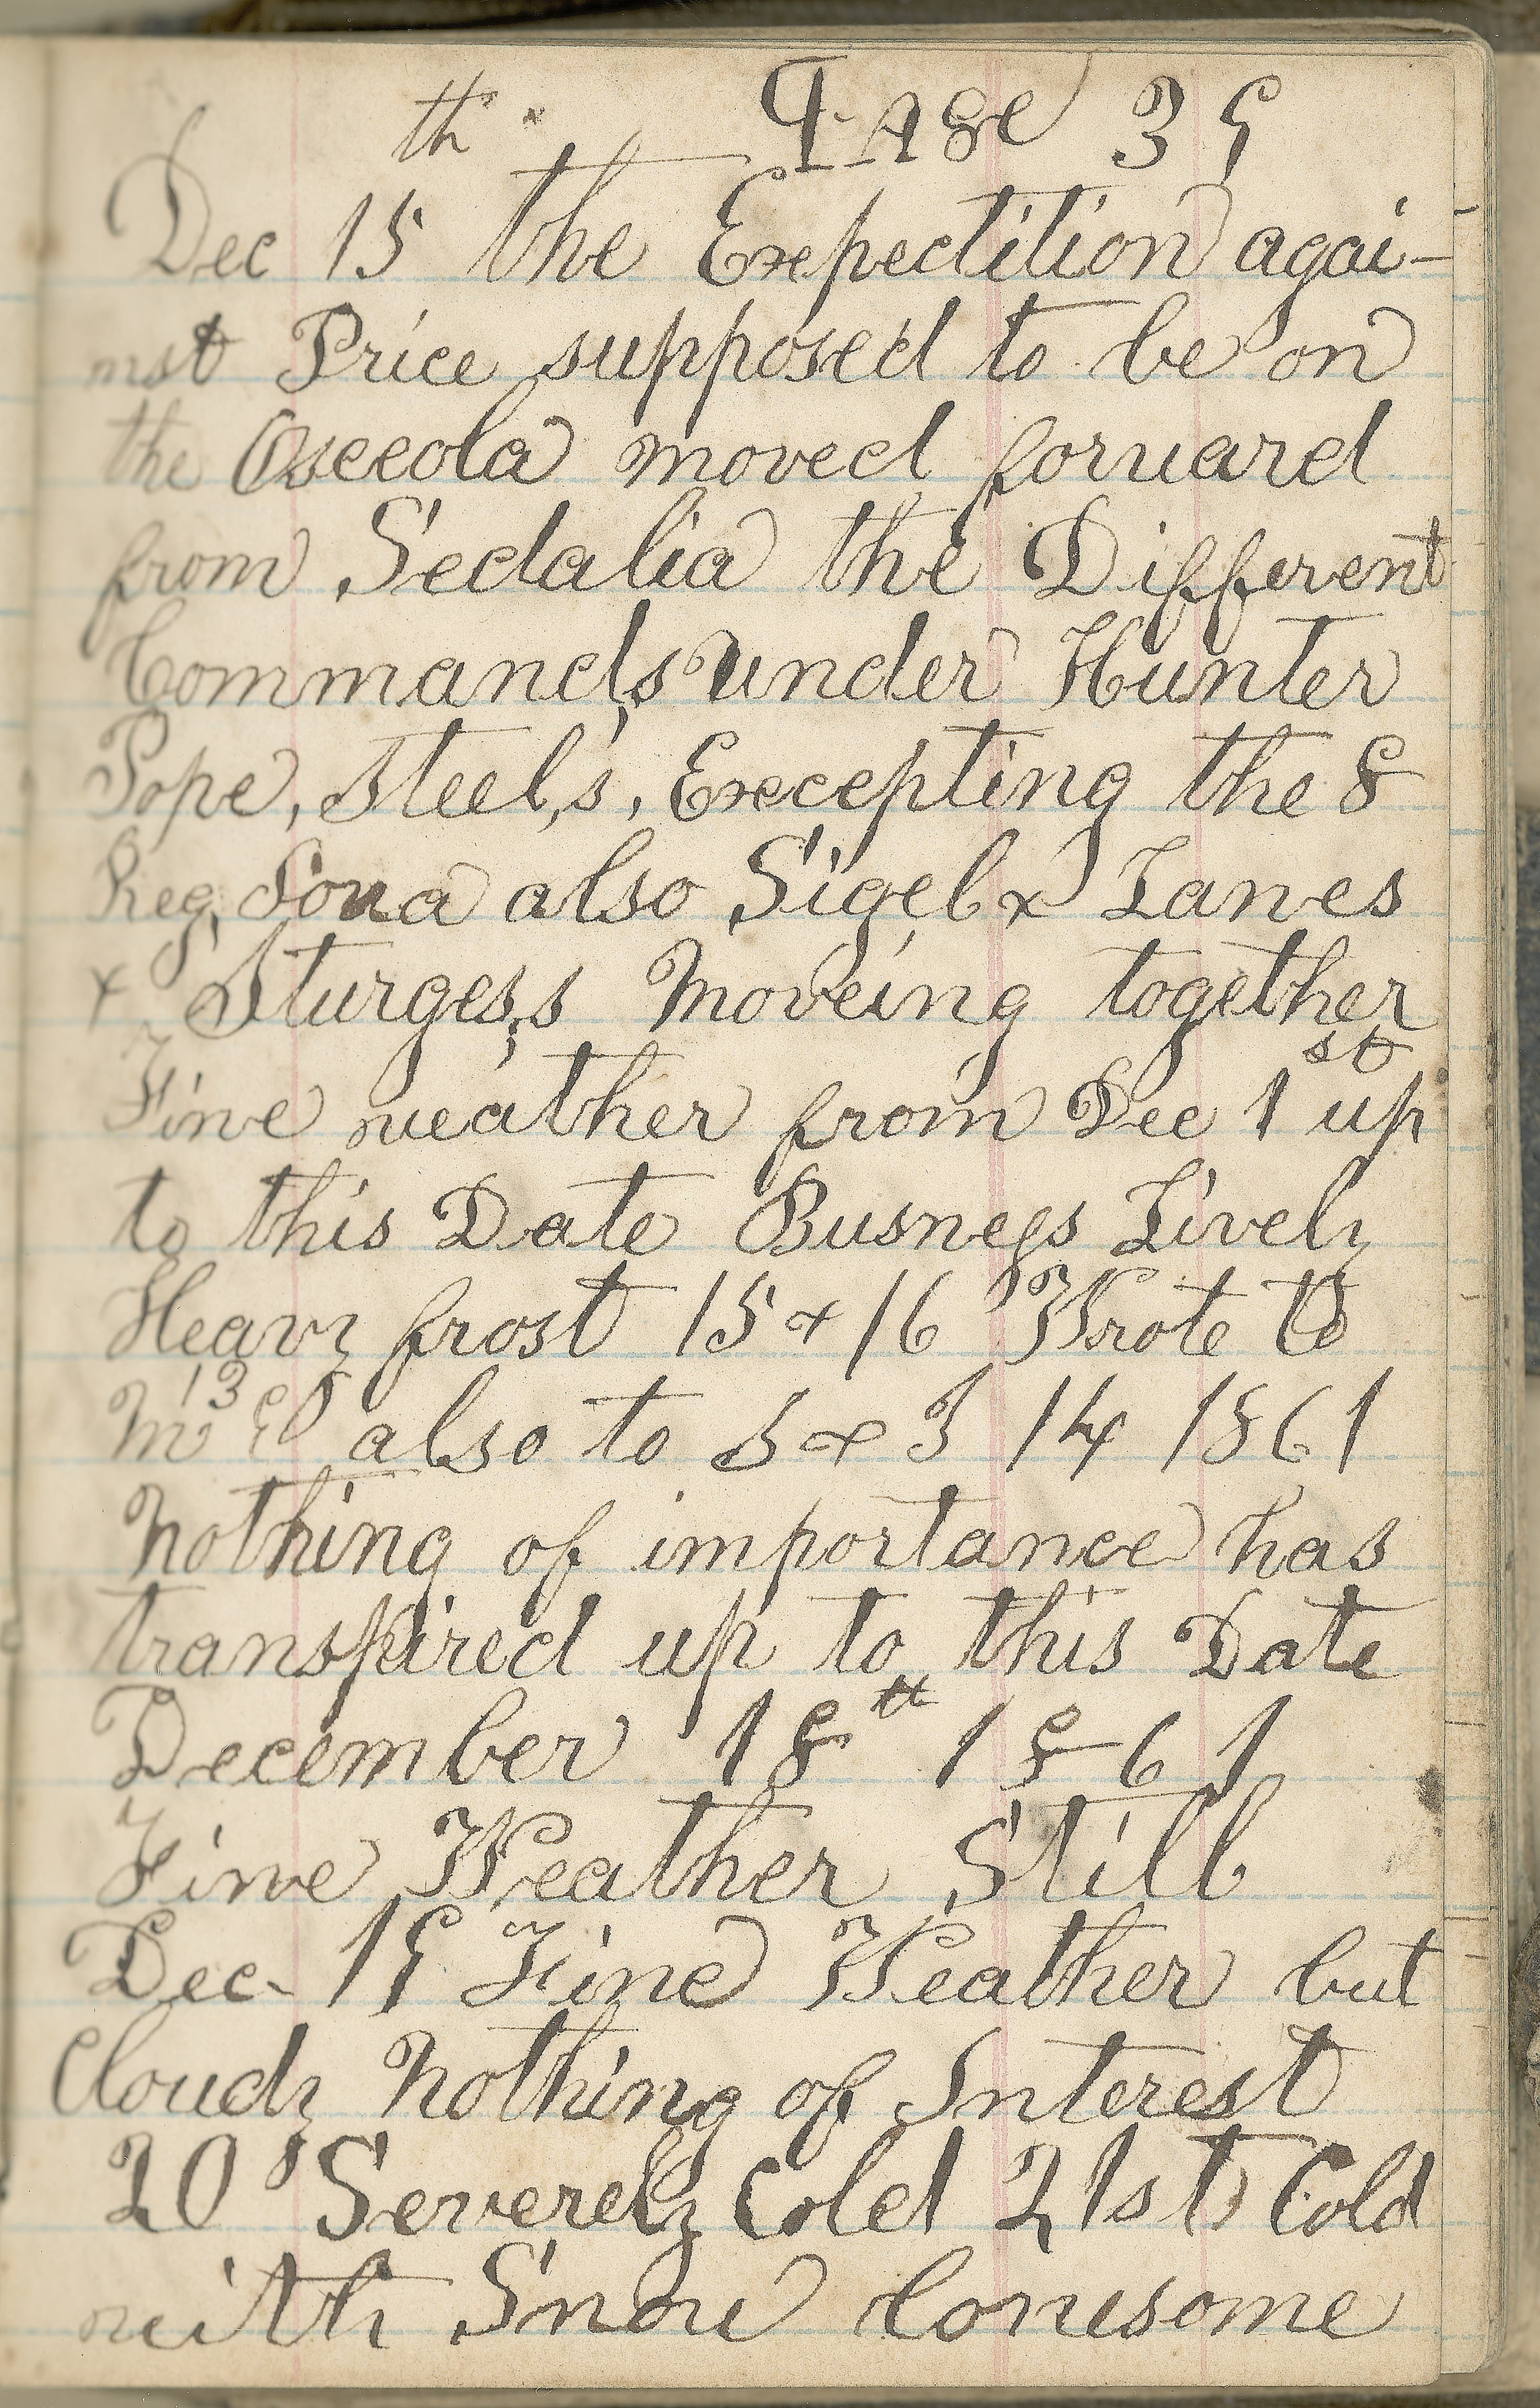 Page 39
Dec 15th the Expectition agai-
nst Price supposed to be on
the Osceola moved forward
from Sedalia the Different
Commands under Hunter
Pope, Steel,s, Excepting the 8
Reg, Iowa also Sigel & Lanes
& Sturges,s Moveing together
Fine weather from Dec 1st up
to this Date Busness Lively
Heavy frost 15 & 16 Wrote to
M E 13 also to S & J 14 1861
Nothing of importance has
transpired up to this Date
December 18th 1861
Fine Weather Still
Dec- 19 Fine Weather but
Cloudy Nothing of Interest
20 Severely Cold 21st Cold
with Snow lonesome